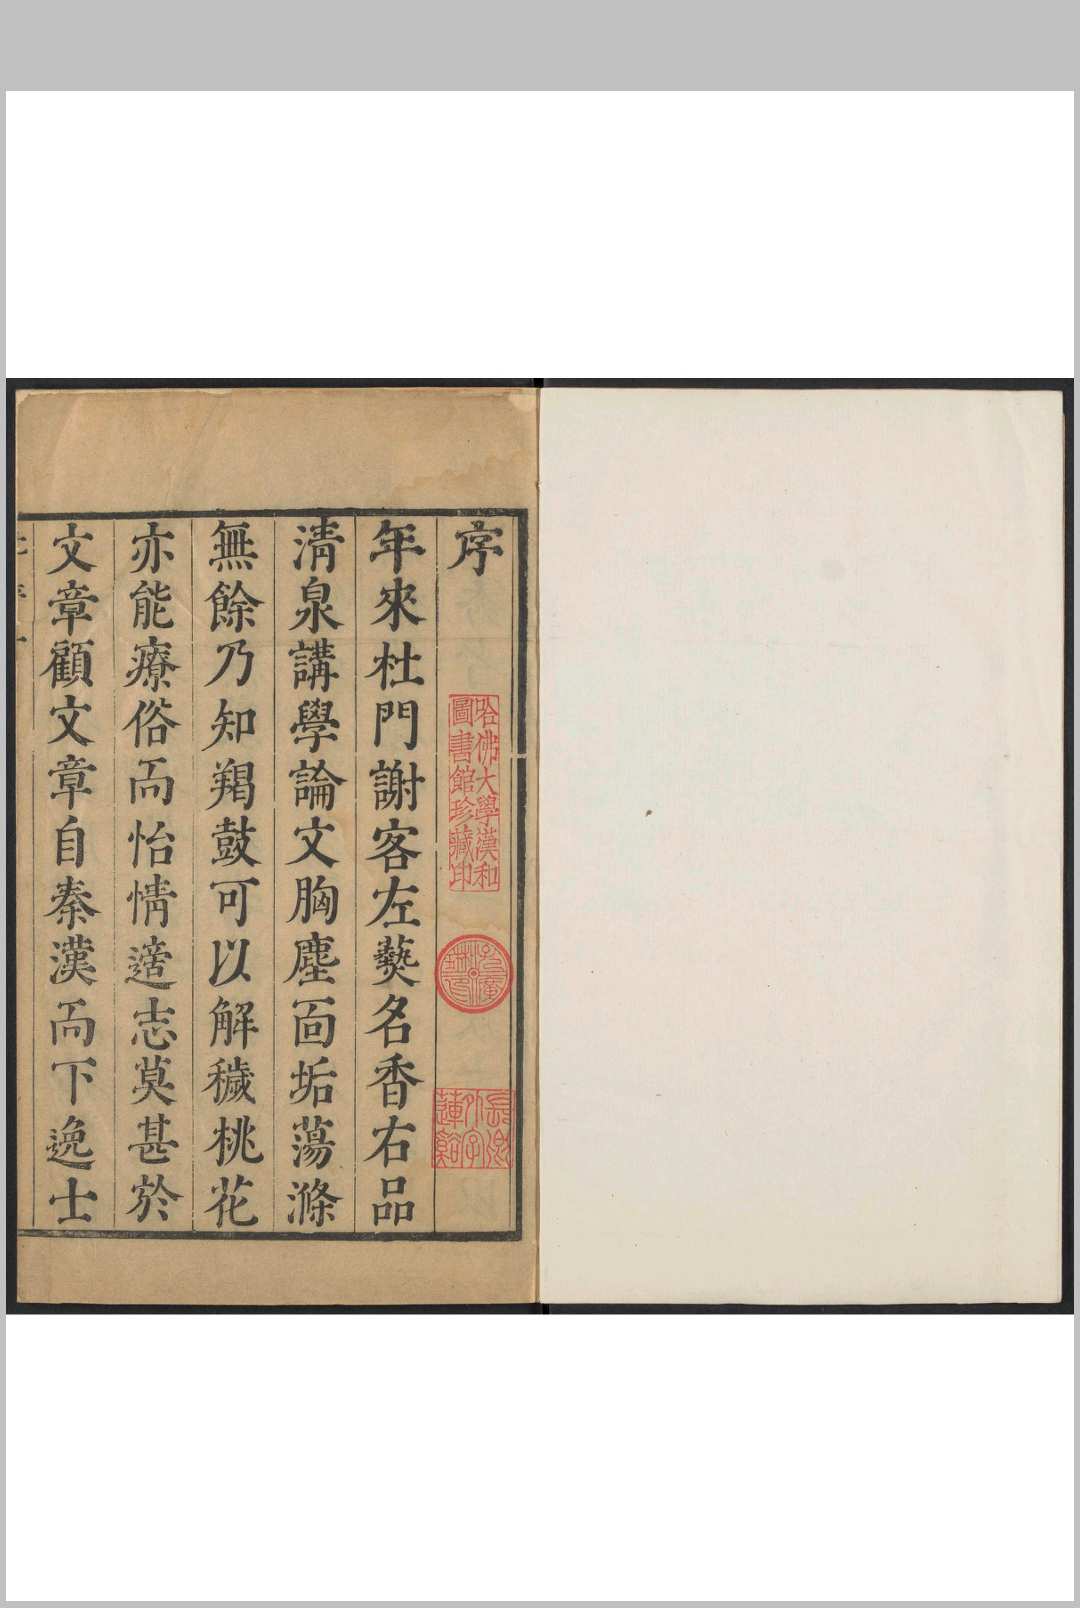 序
哈佛大學漢和
圖書館珍藏印
年來杜門謝客左爇名香右品
清泉講學論文胸塵面垢蕩滌
無餘乃知羯鼓可以解穢桃花
亦能療俗而怡情適志莫甚於
文章顧文章自秦漢而下逸士